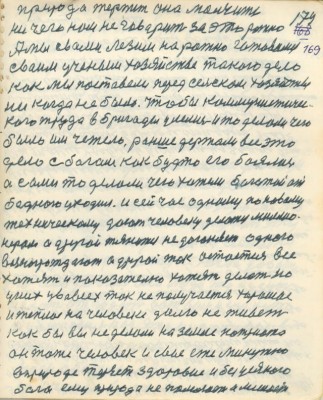 природа терпит она молчит
174
ни чего нам не говорит за это ровно
168
169
А мы своим лезим на рожно готовому
своим ученым хозяйства такого дело
как мы поставели перед сельском хозяйстве
не когда не было. чтобы коммунистиче-
кого труда в бригаде и то делом чего
было им четело, раньше держали все это
дело с богом как будто его боялись
а сами то делали чего хотели богатой от
бедного уходил. и сейчас одному по новому
техническому дают человеку делать милио-
нером а другой тянется не догоняет одного
а другой так остается все
хотят и показателно хотят делат но
у них у всех так не получается хорошое
и теплое на человеке долго не живет
как бы вы не делали на земле
он тоже человек и свое
в природе теряет здоровие и без
бога ему природа не помогает а мешает